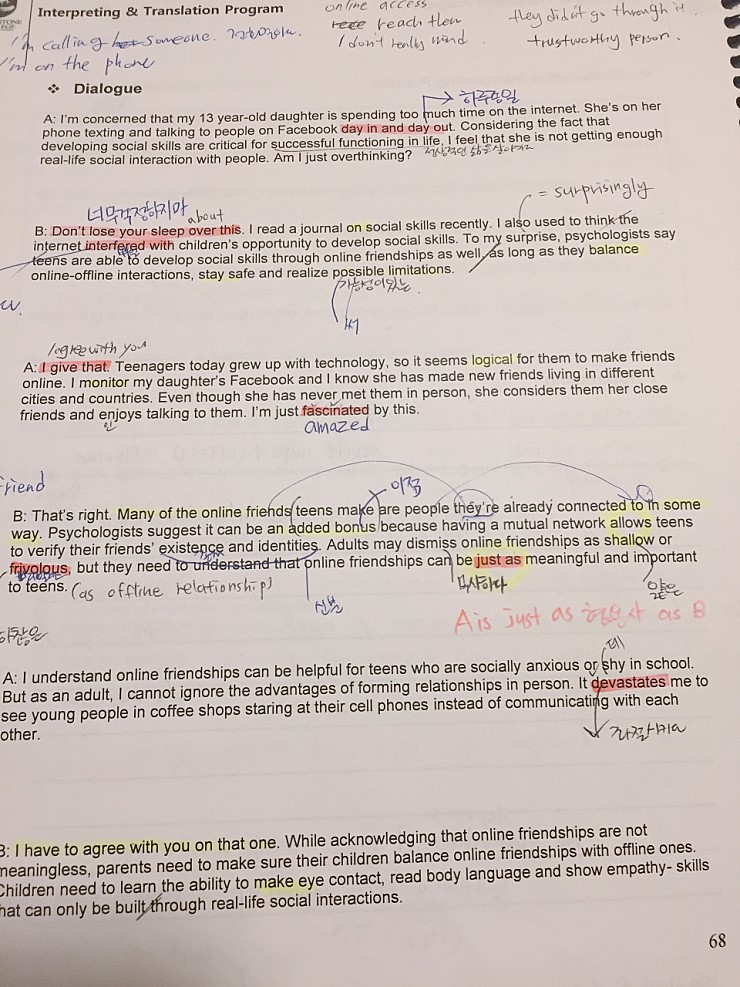 Interpreting & Translation Program
online access
reach them
I don't really mind.
they didn't go through it.
trustworthy person.
I'm calling someone.
I'm on the phone
❖ Dialogue
하루종일
A: I'm concerned that my 13 year-old daughter is spending too much time on the internet. She's on her
phone texting and talking to people on Facebook day in and day out. Considering the fact that
developing social skills are critical for successful functioning in life, I feel that she is not getting enough
real-life social interaction with people. Am I just overthinking?
너무걱정하지마
about
= surprisingly
B: Don't lose your sleep over this. I read a journal on social skills recently. I also used to think the
internet interfered with children's opportunity to develop social skills. To my surprise, psychologists say
teens are able to develop social skills through online friendships as well, as long as they balance
online-offline interactions, stay safe and realize possible limitations.
가능성이있는
I agree with you
A: I give that. Teenagers today grew up with technology, so it seems logical for them to make friends
online. I monitor my daughter's Facebook and I know she has made new friends living in different
cities and countries. Even though she has never met them in person, she considers them her close
friends and enjoys talking to them. I'm just fascinated by this.
amazed
friend
이쯤
B: That's right. Many of the online friends teens make are people they're already connected to in some
way. Psychologists suggest it can be an added bonus because having a mutual network allows teens
to verify their friends' existence and identities. Adults may dismiss online friendships as shallow or
frivolous, but they need to understand that online friendships can be just as meaningful and important
to teens. (as offline relationship)
신분
묵살하다
얕은
하찮은
A is just as 형용사 as B
A: I understand online friendships can be helpful for teens who are socially anxious or shy in school.
But as an adult, I cannot ignore the advantages of forming relationships in person. It devastates me to
see young people in coffee shops staring at their cell phones instead of communicating with each
other.
B: I have to agree with you on that one. While acknowledging that online friendships are not
meaningless, parents need to make sure their children balance online friendships with offline ones.
Children need to learn the ability to make eye contact, read body language and show empathy- skills
that can only be built through real-life social interactions.
68